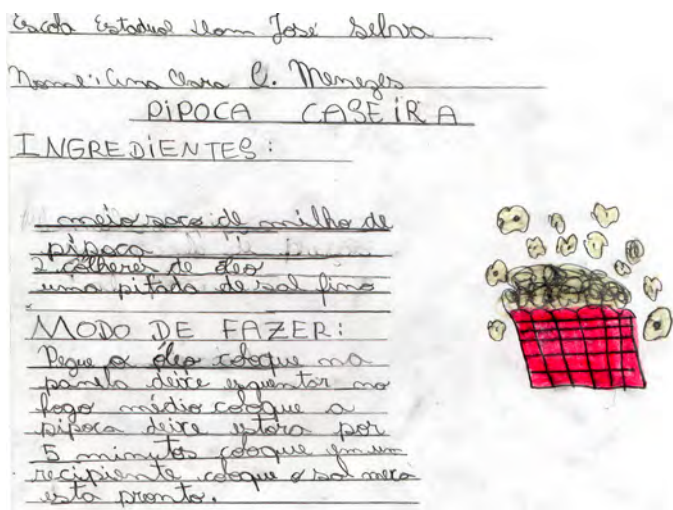 Escola Estadual Dom José Selva
Nome: Ana Clara C. Menezes
PIPOCA CASEIRA
INGREDIENTES:
meio saco de milho de
pipoca
2 colheres de óleo
uma pitada de sal fino
MODO DE FAZER:
Pegue o óleo coloque na
panela deixe esquentar no
fogo médio coloque a
pipoca deixe estora por
5 minutos coloque em um
recipiente coloque o sal mexa
esta pronto.